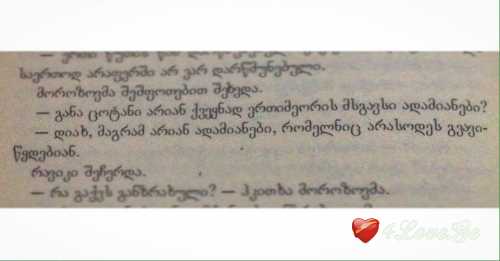 საერთოდ არაფერში არ ვარ დარწმუნებული.
მოროზოვმა შეშფოთებით შეხედა.
— განა ცოტანი არიან ქვეყნად ერთიმეორის მსგავსი ადამიანები?
— დიახ, მაგრამ არიან ადამიანები, რომელნიც არასოდეს გვავი-
წყდებიან.
რავიკი შეჩერდა.
— რა გაქვს განზრახული? — ჰკითხა მოროზოვმა.
4Love.Ge